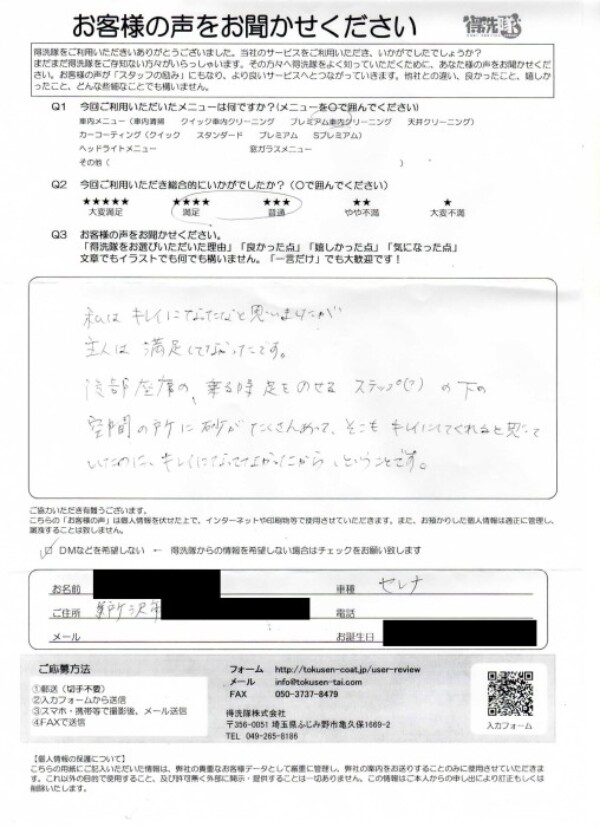 お客様の声をお聞かせください
得洗隊
得洗隊をご利用いただきありがとうございました。当社のサービスをご利用いただき、いかがでしたでしょうか?
まだまだ得洗隊をご存知ない方々がいらっしゃいます。その方々へ得洗隊をよく知っていただくために、あなた様の声をお聞かせください。お客様の声が「スタッフの励み」にもなり、より良いサービスへとつながっていきます。他社との違い、良かったこと、嬉しかったこと、どんな些細なことでも構いません。
Q1 今回ご利用いただいたメニューは何ですか?(メニューを○で囲んでください)
車内メニュー(車内清掃 クイック車内クリーニング プレミアム車内クリーニング 天井クリーニング)
カーコーティング(クイック スタンダード プレミアム Sプレミアム)
ヘッドライトメニュー 窓ガラスメニュー
その他( )
Q2 今回ご利用いただき総合的にいかがでしたか?(○で囲んでください)
★★★★★ ★★★★ ★★★ ★★ ★
大変満足 満足 普通 やや不満 大変不満
Q3 お客様の声をお聞かせください。
「得洗隊をお選びいただいた理由」「良かった点」「嬉しかった点」「気になった点」
文章でもイラストでも何でも構いません。「一言だけ」でも大歓迎です!
私は キレイになったなと思いましたが
主人は 満足してなかったです。
後部座席の、乗る時 足をのせる ステップ(?) の下の
空間の所に 砂が たくさんあって、そこも キレイにしてくれると思って
いたのに、キレイになってなかったから、ということです。
ご協力いただき有難うございます。
こちらの「お客様の声」は個人情報を伏せた上で、インターネットや印刷物等で使用させていただきます。また、お預かりした個人情報は適正に管理し、譲渡することは致しません。
□ DMなどを希望しない ← 得洗隊からの情報を希望しない場合はチェックをお願い致します
お名前 車種 セレナ
ご住所 所沢市 電話
メール お誕生日
ご応募方法
①郵送(切手不要)
②入力フォームから送信
③スマホ・携帯等で撮影後、メール送信
④FAXで送信
フォーム http://tokusen-coat.jp/user-review
メール info@tokusen-tai.com
FAX 050-3737-8479
得洗隊株式会社
〒356-0051 埼玉県ふじみ野市亀久保1669-2
TEL 049-265-8186
入力フォーム
【個人情報の保護について】
こちらの用紙にご記入いただいた情報は、弊社の貴重なお客様データとして厳重に管理し、弊社の案内をお送りすることのみに使用させていただきます。これ以外の目的で使用すること、及び許可無く外部に開示・提供することは一切ありません。この情報はご本人からの申し出により訂正もしくは削除いたします。